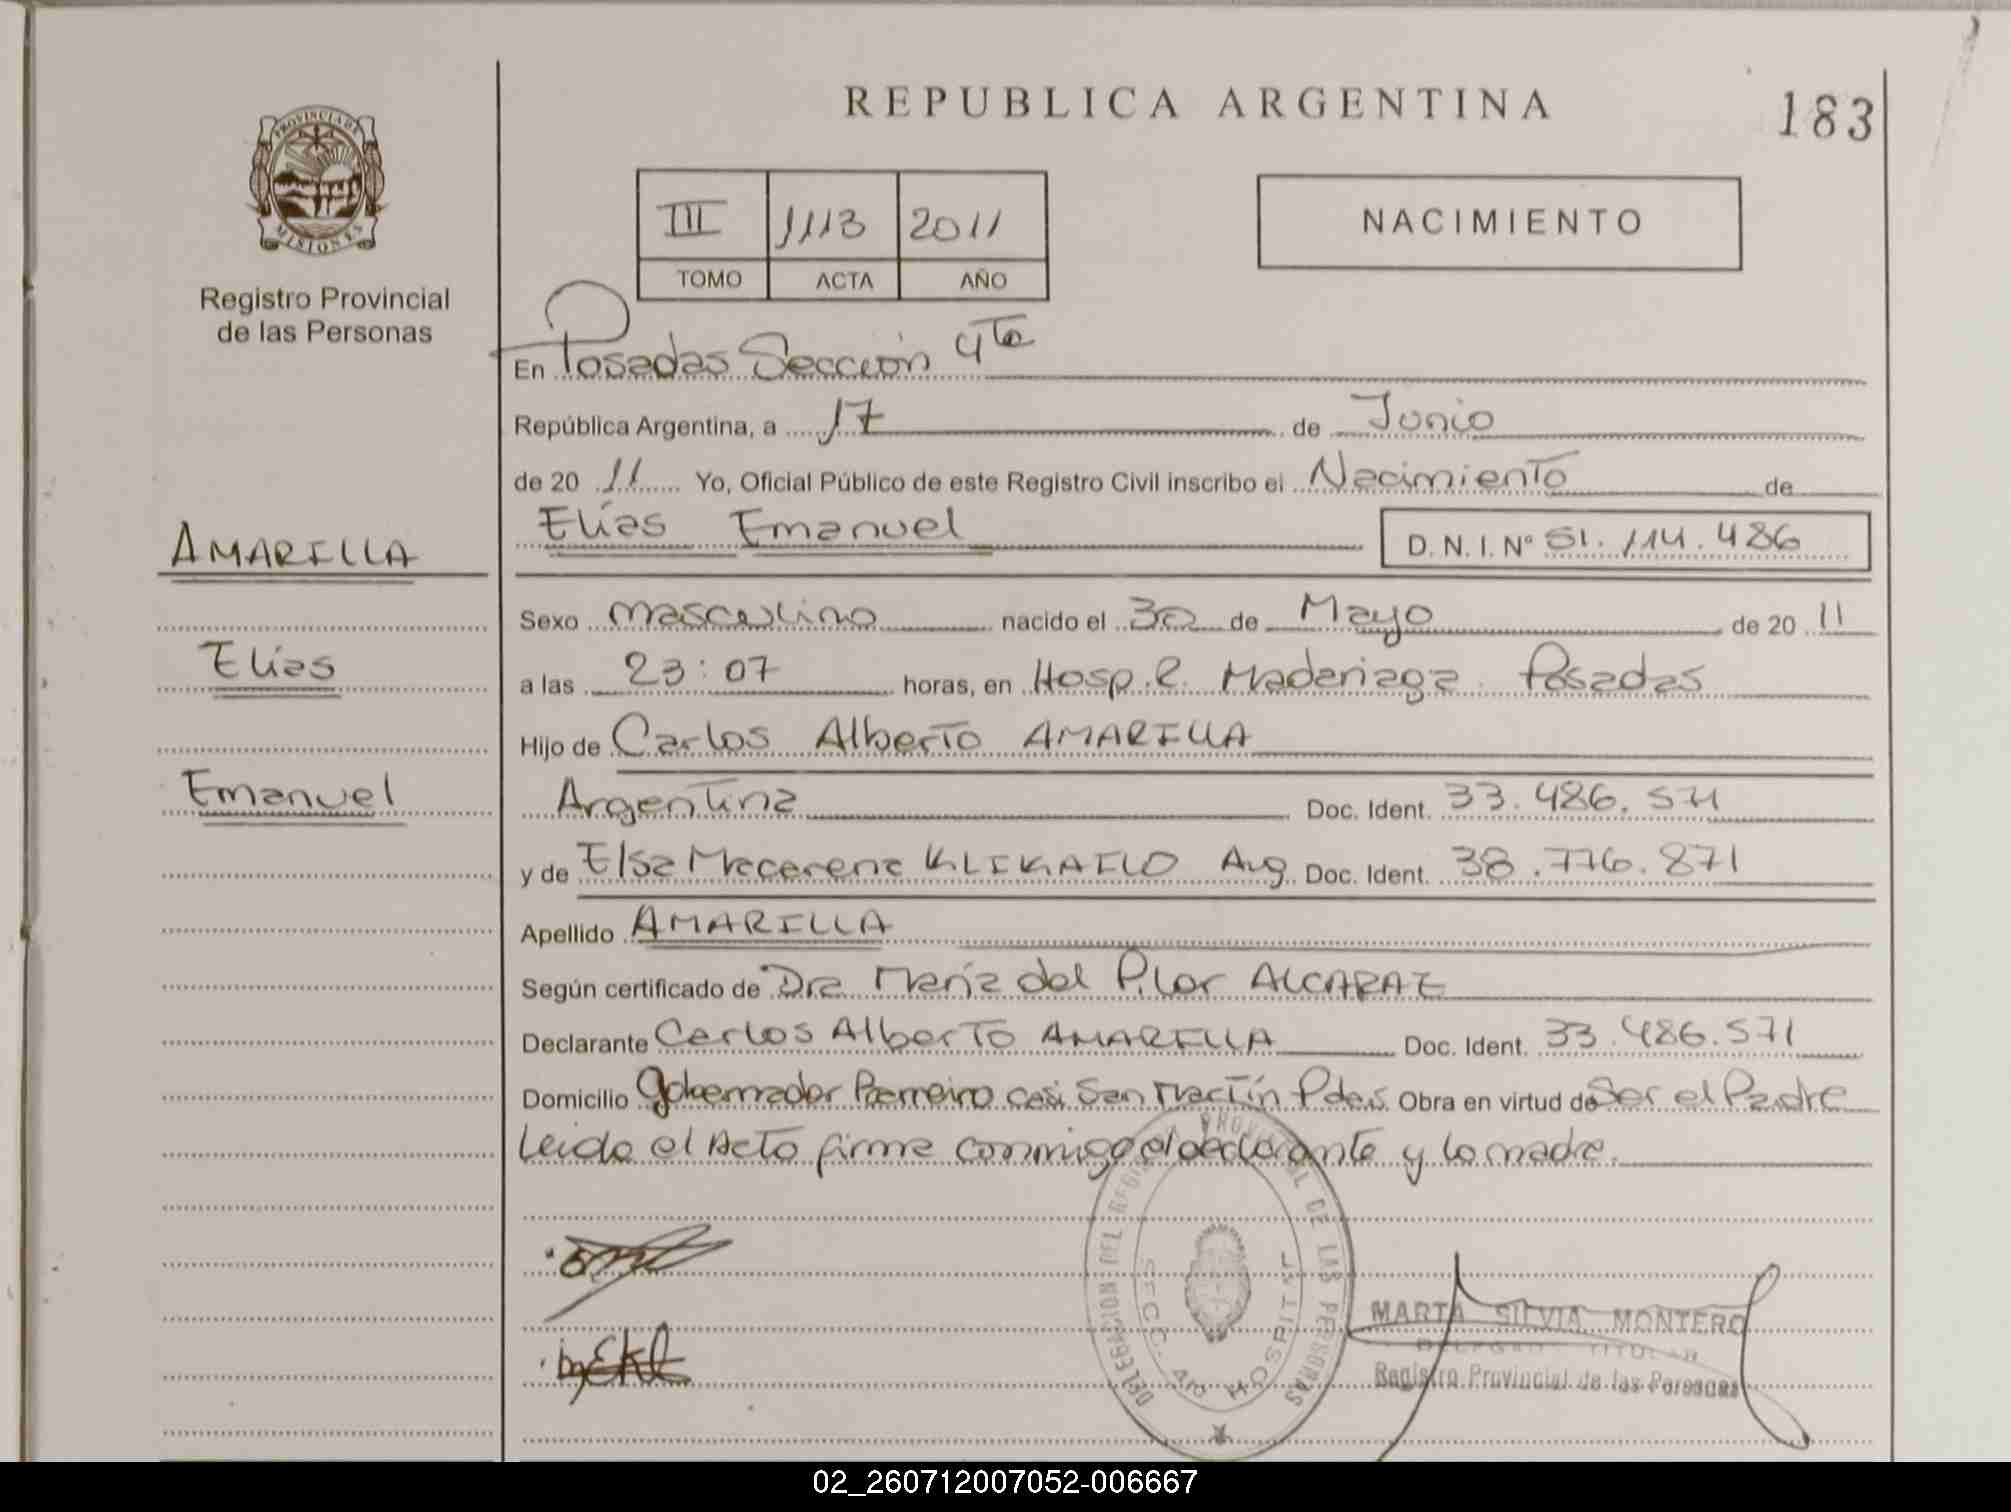 REPUBLICA ARGENTINA
183
PROVINCIA DE
MISIONES
Registro Provincial
de las Personas
III 1113 2011
TOMO ACTA AÑO
NACIMIENTO
En Posadas Sección 4ta
República Argentina, a 17 de Junio
de 20 11 Yo, Oficial Público de este Registro Civil inscribo el Nacimiento de
Elías Emanuel D.N.I.Nº 51.114.486
AMARILLA
Elías
Emanuel
Sexo masculino nacido el 30 de Mayo de 20 11
a las 23:07 horas, en Hosp.R. Madariaga Posadas
Hijo de Carlos Alberto AMARILLA
Argentina Doc. Ident. 33.486.571
y de Elsa Macarena KLIKAILO Arg. Doc. Ident. 38.776.871
Apellido AMARILLA
Según certificado de Dra María del Pilar ALCARAZ
Declarante Carlos Alberto AMARILLA Doc. Ident. 33.486.571
Domicilio Gobernador Barreiro casi San Martín Pdas Obra en virtud de Ser el Padre
Leida el Acto firma conmigo el declarante y la madre.
DELEGACION DEL REGISTRO PROVINCIAL DE LAS PERSONAS
SECC. 4ta HOSPITAL
MARTA SILVIA MONTERO
TITULAR
Registro Provincial de las Personas
02_260712007052-006667